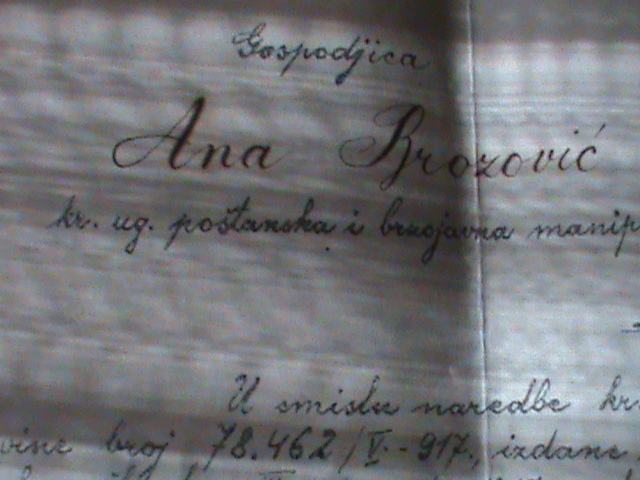 Gospodjica
Ana Brozović
kr. ug. poštanska i brzojavna manip
U smislu naredbe kr.
vine broj 78.462/V.-917., izdane